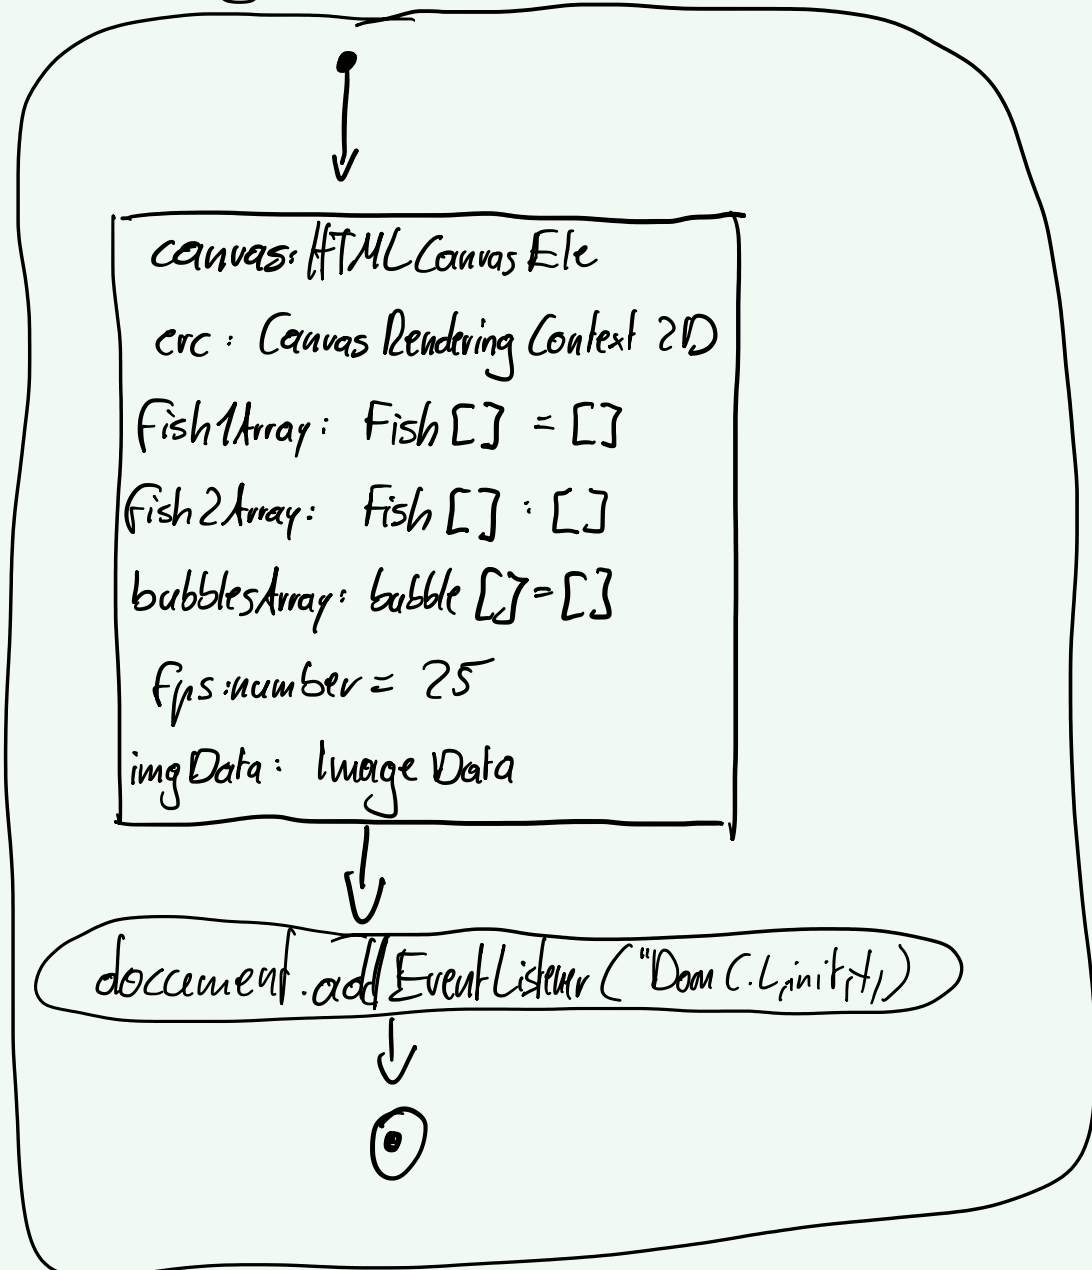 canvas: HTMLCanvasEle
crc : Canvas Rendering Context 2D
fish1Array: Fish [] = []
fish2Array: Fish [] : []
bubblesArray: bubble [] = []
fps:number = 25
imgData: Image Data
document.addEventListener ("Dom C.L,init,